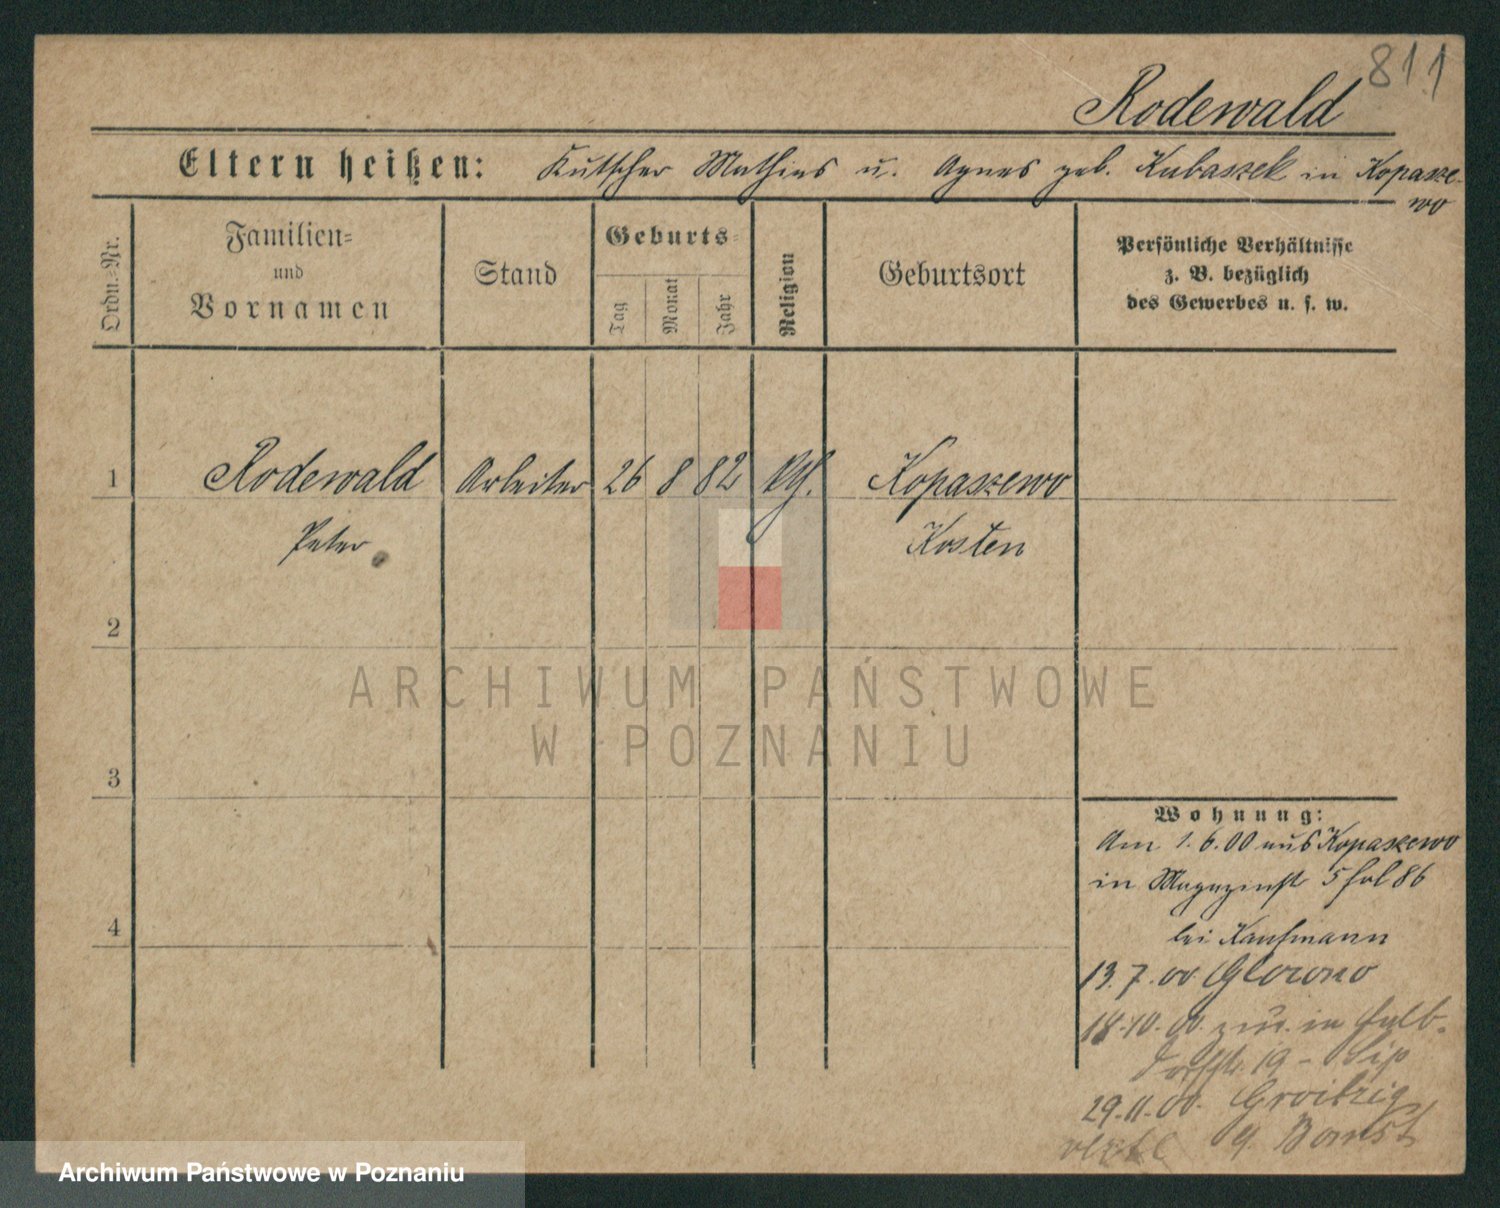 811
Rodewald
Eltern heißen: Kutscher Mathias u. Agnes geb. Kubaszek in Kopasze-
wo
Ordn.-Nr.
Familien-
und
Vornamen
Stand
Geburts-
Tag
Monat
Jahr
Religion
Geburtsort
Persönliche Verhältnisse
z. B. bezüglich
des Gewerbes u. s. w.
1 Rodewald Arbeiter 26 8 82 kth. Kopaszewo
Peter Kosten
2
ARCHIWUM PAŃSTWOWE
W POZNANIU
3
Wohnung:
Am 1.6.00 aus Kopaszewo
in Magazinstr 5 fol 86
bei Kaufmann
4
13.7.00 Glowno
18.10.00. zur. in Halb-
dorfstr. 19 -
29.11.00.
Bomst
Archiwum Państwowe w Poznaniu